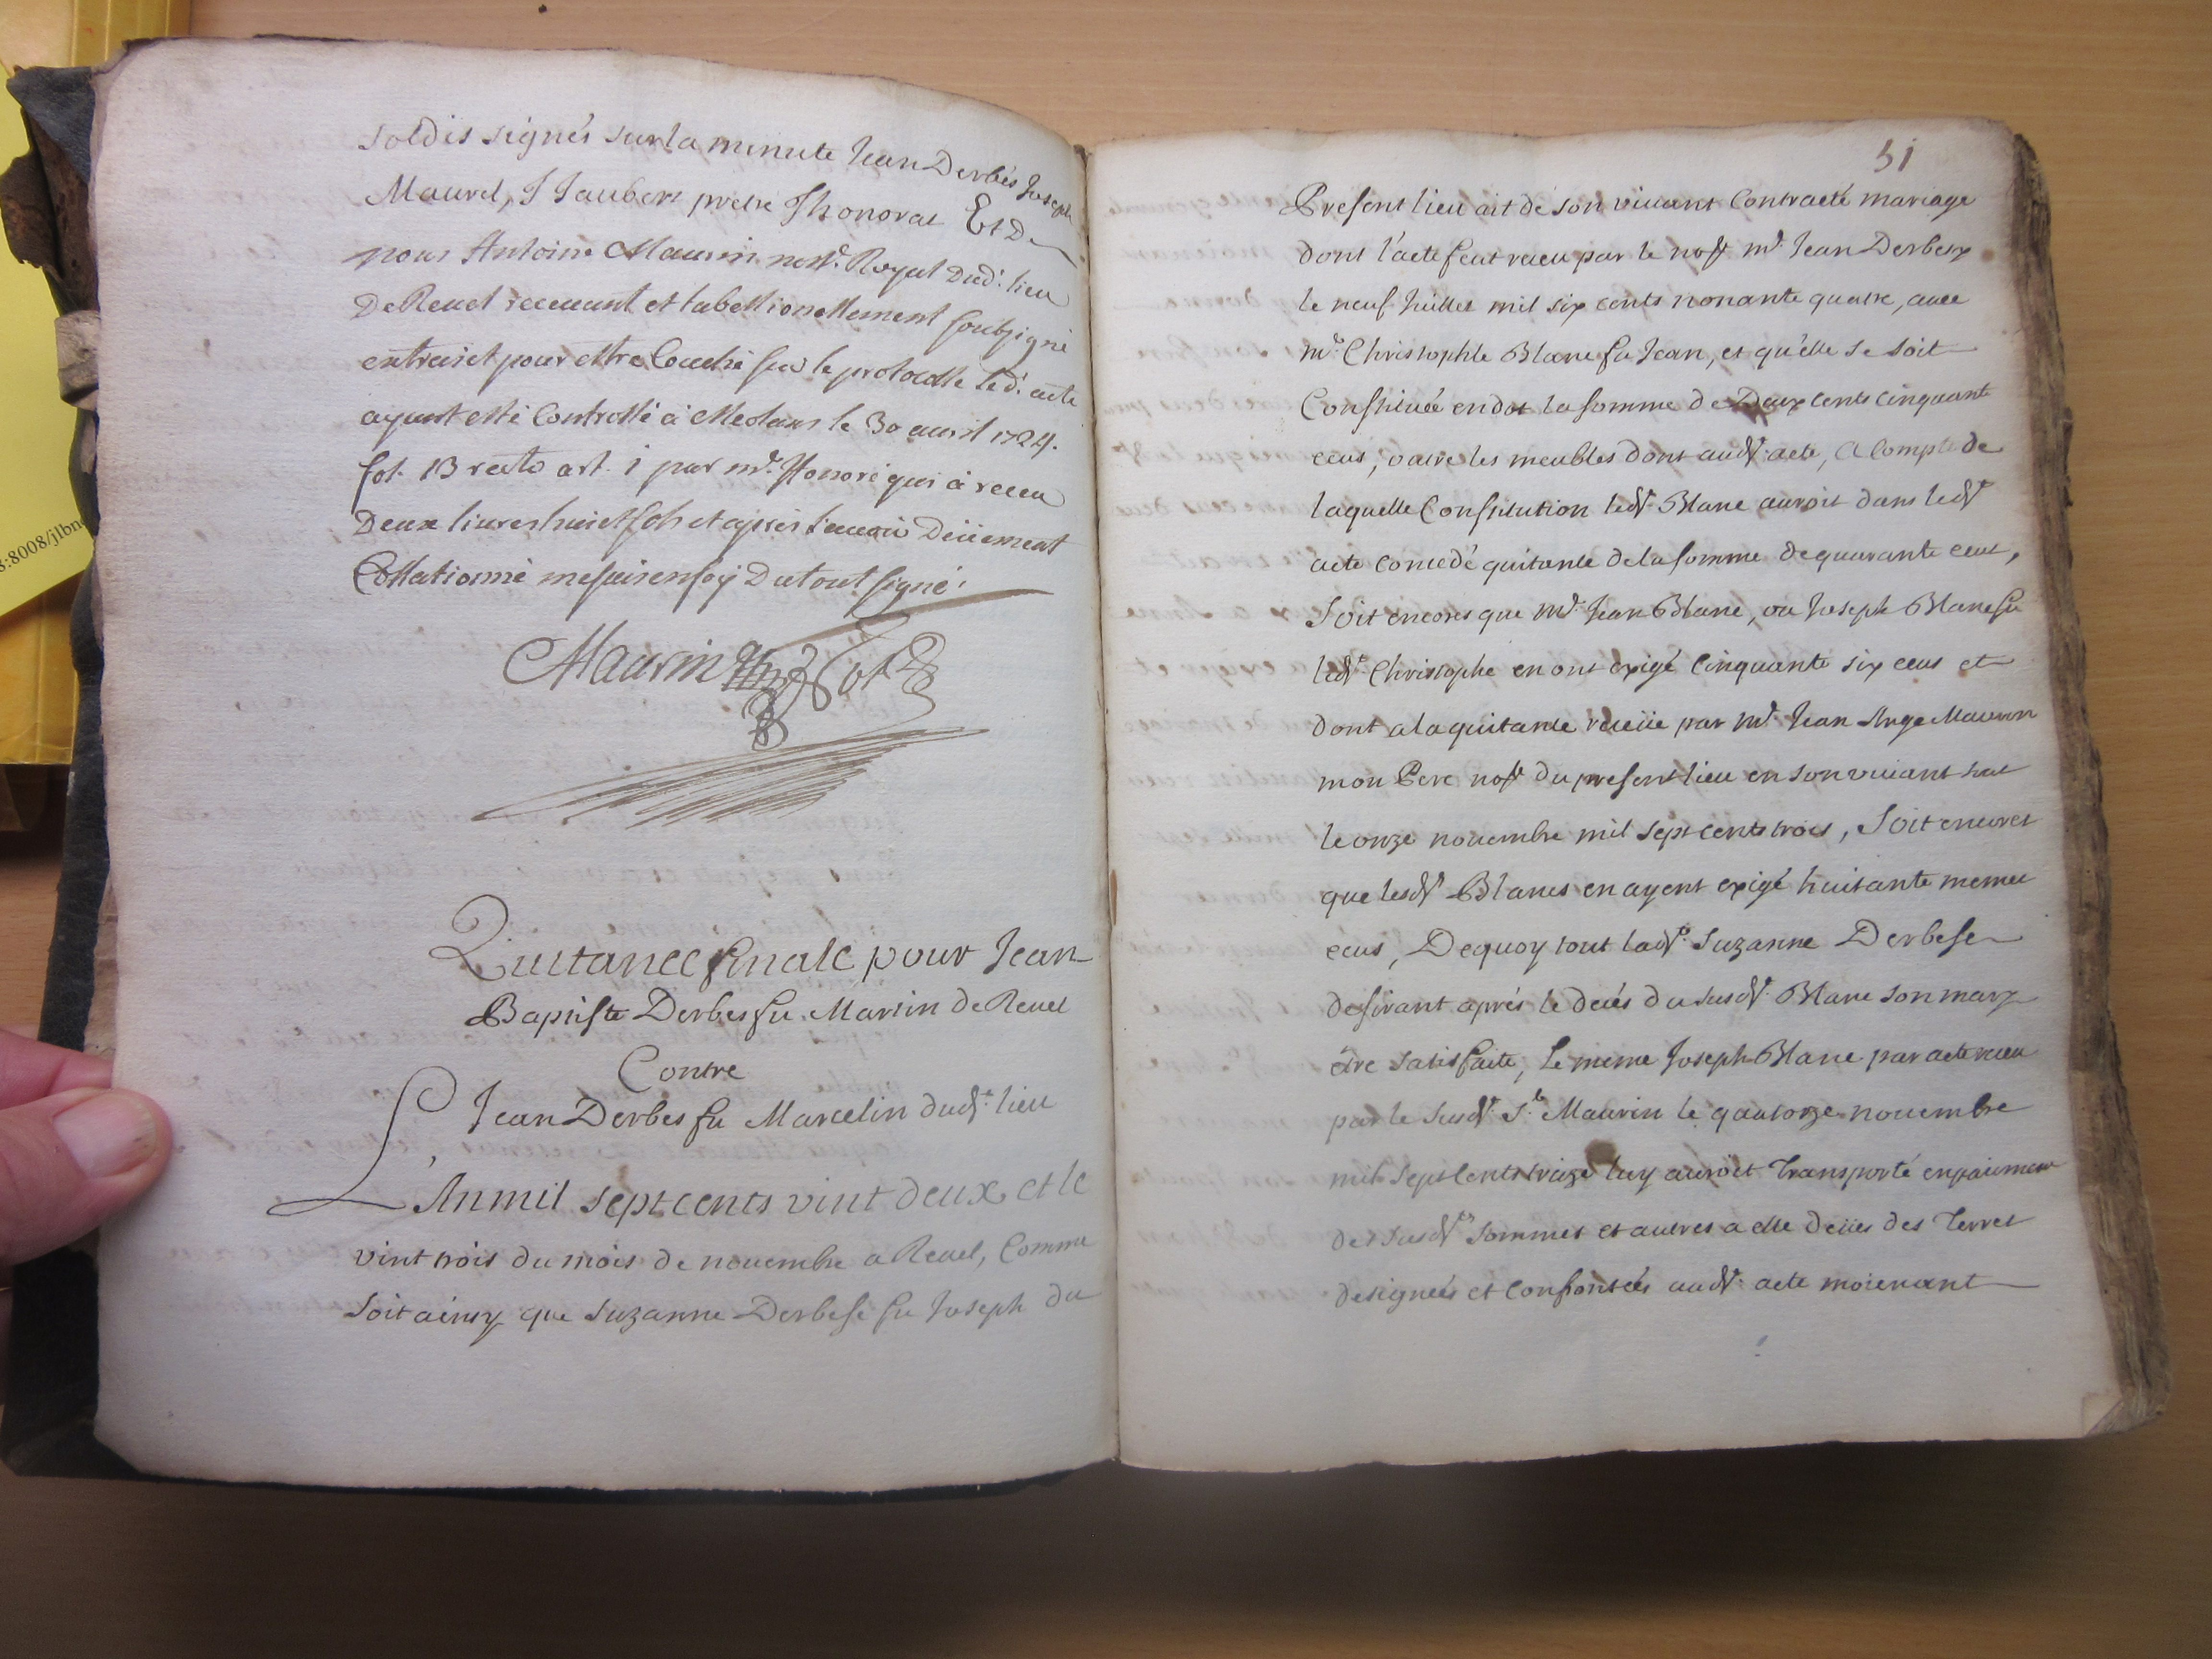 soldis signés sur la minute Jean Derbés Joseph
Maurel, J Jaubert pretre J honorat Et De
nous Antoine Maurin nott.e Royal Dud.t lieu
De Revel recevant et tabellionellement soubsigné
extrait pour estre Couché sur le protocolle led.t acte
ayant esté Controllé à Meolans le 30 avril 1724.
fol. 13 recto art. 1 par m.e Honoré qui à receu
Deux livres huict sols et apres l'avoir Deüement
Collationné me suis en foy Du tout signé.
Maurin not.e
Quittance finale pour Jean
Baptiste Derbes fu Martin de Revel
Contre
Jean Derbes fu Marcelin dud.t lieu
L'An mil sept cents vint deux et le
vint trois du mois de novembre a Revel, Comme
soit ainsy que Suzanne Derbese fu Joseph du
51
Present lieu ait de son vivant Contracté mariage
dont l'acte feut receu par le nott.e m.e Jean Derbesy
le neuf Juillet mil six cents nonante quatre, avec
m.e Christophle Blanc fu Jean, et qu'elle se soit
Constituée en dot la somme de Deux cents cinquant
ecus, outre les meubles dont aud.t acte, A Compte de
laquelle Constitution led.t Blanc auroit dans led.t
acte concedé quitance de la somme de quarante ecus,
Soit encores que m.e Jean Blanc, ou Joseph Blanc fu
led.t Christophe en ont exigé Cinquante six ecus et
dont a la quitance receüe par m.e Jean Ange Maurin
mon Pere nott.e du present lieu en son vivant
le onze novembre mil sept cents trois, Soit encores
que lesd.ts Blancs en ayent exigé huitante
ecus, De quoy tout lad.te Suzanne Derbese
desirant aprés le decés du susd.t Blanc son mary
être satisfaite, Le meme Joseph Blanc par acte receu
par le susd.t S.r Maurin le quatorze novembre
mil sept cents treize luy auroit Transporté en paiement
des susd.tes sommes et autres a elle deües des Terres
designées et confrontées aud.t acte moienant